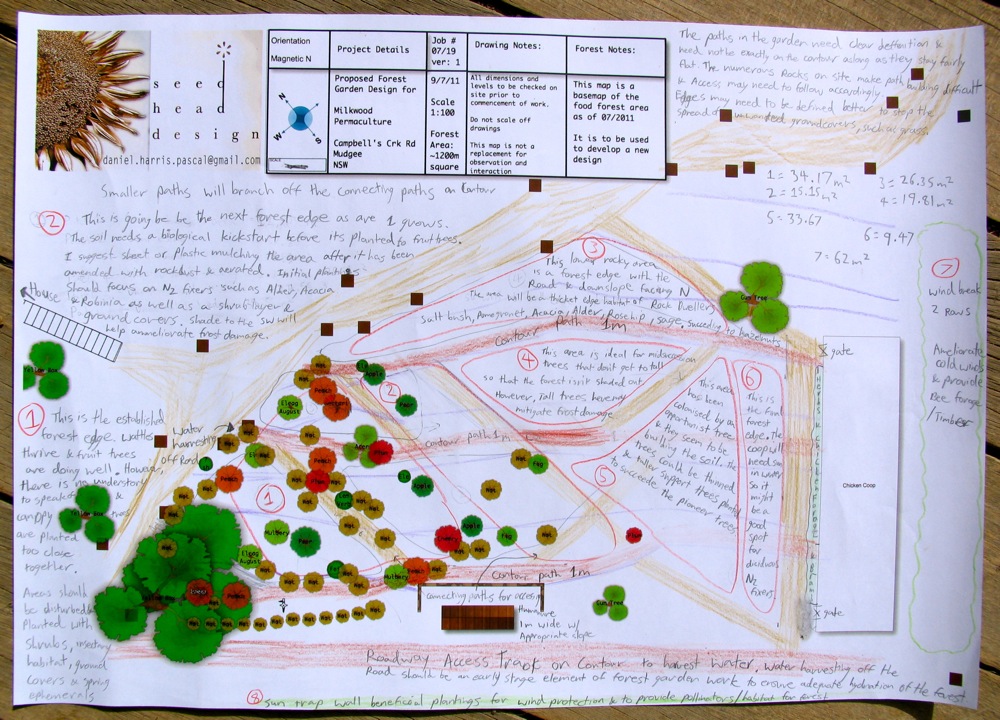 seed
head
design
daniel.harris.pascal@gmail.com
Orientation
Magnetic N
Project Details
Job #
07/19
ver: 1
Drawing Notes:
Forest Notes:
N
E
S
W
Proposed Forest
Garden Design for
Milkwood
Permaculture
Campbell's Crk Rd
Mudgee
NSW
9/7/11
Scale
1:100
Forest
Area:
~1200m
square
All dimensions and
levels to be checked on
site prior to
commencement of work.
Do not scale off
drawings
This map is not a
replacement for
observation and
interaction
This map is a
basemap of the
food forest area
as of 07/2011
It is to be
used to
develop a new
design
The paths in the garden need clear deffinition &
need not be exactly on the contour as long as they stay fairly
flat. The numerous Rocks on site make path building difficult
& Access may need to follow accordingly.
Edges may need to be defined better to stop the
spread of unwanted groundcovers, such as grass.
1 = 34.17 m²
2 = 15.15 m²
3 = 26.35 m²
4 = 19.81 m²
5 = 33.67
6 = 9.47
7 = 62 m²
Smaller paths will branch off the connecting paths on contour
2
This is going be be the next forest edge as are 1 grows.
The soil needs a biological kickstart before its planted to fruit trees.
I suggest sheet or plastic mulching the area after it has been
amended with rockdust & aerated. Initial plantings
Should focus on N2 fixers such as Alder, Acacia
& Robinia as well as a shrub layer &
ground covers. Shade to the SW will
help ameliorate frost damage.
House
3
This lower rocky area
is a forest edge with the
Road & downslope facing N
The area will be a thicket edge habitat of Rock Dwellers
Salt bush, Pomegranet, Acacia, Alder, Rosehip, sage. Succeeding to hazelnuts
Contour path 1m
4
This area is ideal for midsucession
trees that don't get to tall
so that the forest isn't shaded out
However, tall trees here may
mitigate frost damage
5
This area
has been
colonised by
opportunist trees
& they seem to be
building the soil. The
trees could be thinned
& taller support trees planted
to succeede the pioneer trees
6
This is
the final
forest
edge. The
coop will
need sun
in winter
so it
might
be a
good
spot
for
deciduous
N2
fixers
7
wind break
2 Rows
Ameliorate
cold winds
& provide
Bee forage
/Timber
gate
Chicken Coop
gate
1
This is the established
forest edge. Wattles
thrive & fruit trees
are doing well. However,
there is no understory
to speak of &
canopy trees
are planted
too close
together.
Areas should
be disturbed &
Planted with
Shrubs, insectary
habitat, ground
covers & spring
ephemerals
Water
harvesting
off Road
contour path 1m
2
1
Gum Tree
Yellow Box
Apple
Peach
Elaeg
August
Pear
Wgt
Mulberry
Fig
Apple
Cherry
Plum
Contour path 1m
connecting paths for access
1m wide w/
Appropriate slope
Gum Tree
Roadway Access Track on Contour to harvest Water. Water harvesting off the
Road should be an early stage element of forest garden work to ensure adequate hydration of the forest
8 sun trap wall beneficial plantings for wind protection & to provide pollinators/habitat for forest